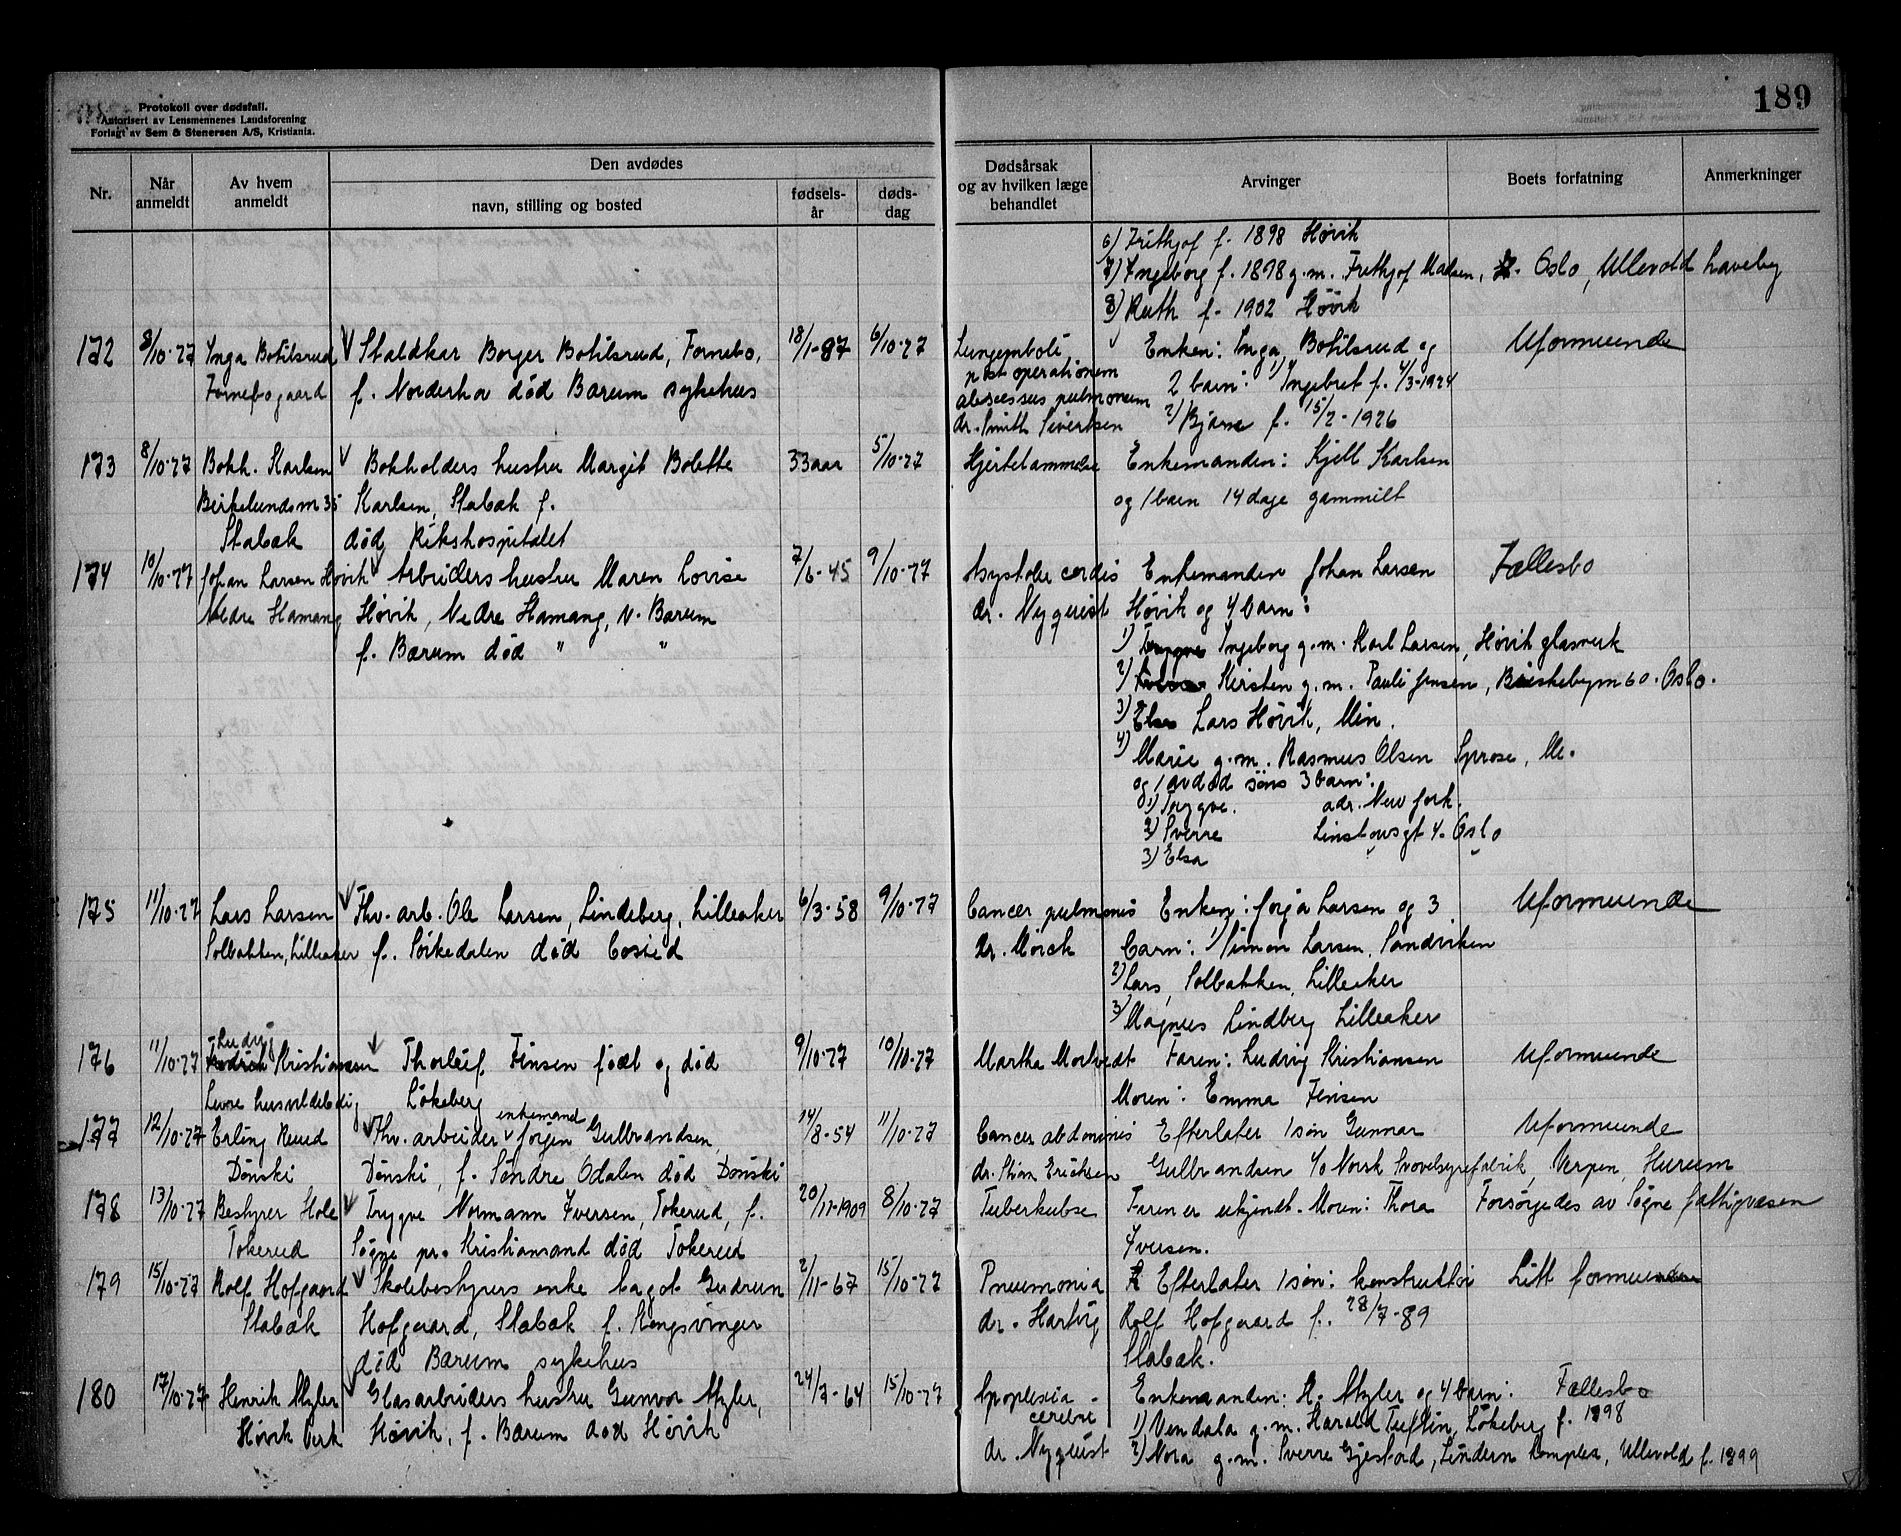 Protokoll over dødsfall.
Autorisert av Lensmennenes Landsforening
Forlagt av Sem & Stenersen A/S, Kristiania.
189
Nr.
Når anmeldt
Av hvem anmeldt
Den avdødes
navn, stilling og bosted
fødsels-år
døds-dag
Dødsårsak og av hvilken læge behandlet
Arvinger
Boets forfatning
Anmerkninger
6) Frithjof f. 1898 Høvik
7) Ingeborg f. 1898 g.m. Frithjof Madsen, Oslo, Ullevold haveby
8) Ruth f. 1902 Høvik
172 8/10-27 Inga Botilsrud Staldkar Borger Botilsrud, Fornebo, 18/1-87 6/10-27 Lungemboli Enken: Inga Botilsrud og Uformuende
Fornebogaard f. Norderhov død Bærum sykehus post operationem 2 barn: 1) Ingebret f. 4/3-1924
abscessus pulmonum
dr. Smith Sivertsen 2) Bjarne f. 15/2-1926
173 8/10-27 Bokh. Karlsen Bokholders hustru Margit Bolette 33 aar 5/10-27 Hjertelammelse Enkemanden: Kjell Karlsen
Birkelundsm 35 Karlsen, Stabæk f. og 1 barn 14 dage gammelt
Stabæk død Rikshospitalet
174 10/10-27 Johan Larsen Høvik Arbeiders hustru Maren Lovise 7/6-45 9/10-27 Asystolie cordis Enkemanden Johan Larsen Fællesbo
Nedre Hamang Høvik, Nedre Hamang, V. Bærum dr. Nyquist Høvik og 4 barn:
f. Bærum død " " 1) Ingeborg g.m. Karl Larsen, Høvik glasverk
2) Kirsten g.m. Pauli Jensen, Briskebym 60. Oslo.
3) Lars Høvik, Min.
4) Marie g.m. Rasmus Olsen Sprose, Ule.
og 1 avdød søns 3 barn:
1) Trygve. adr. New York.
2) Sverre Linstowsgt 4. Oslo
3) Elsa
175 11/10-27 Lars Larsen Fhv. arb. Ole Larsen, Lindeberg, Lilleaker 6/3-58 9/10-27 Cancer pulmonis Enken: Jorja Larsen og 3 Uformuende
Solbakken, Lilleaker f. Sørkedalen død bosted dr. Mørck barn: 1) Simon Larsen, Sandviken
2) Lars, Solbakken, Lilleaker
3) Magnus Lindberg Lilleaker
176 11/10-27 Ludvig Kristiansen Thorleif Finsen født og død 9/10-27 10/10-27 Martha Mortvedt Faren: Ludvig Kristiansen Uformuende
Løkeberg Moren: Emma Finsen
177 12/10-27 Erling Ruud Fhv. arbeider enkemand Jørgen Gulbrandsen 14/8-54 11/10-27 Cancer abdominis Efterlater 1 søn Gunnar Uformuende
Dønski Dønski, f. Søndre Odalen død Dønski dr. Stian Erichsen Gulbrandsen c/o Norsk Svovelsyrefabrik, Verpen, Hurum
178 13/10-27 Bestyrer Hole Trygve Normann Iversen, Tokerud, f. 20/11-1909 8/10-27 Tuberkulose Faren er ukjendt. Moren: Thora Forsørgedes av Søgne fattigvæsen
Tokerud Søgne pr. Kristiansand død Tokerud Iversen.
179 15/10-27 Rolf Hofgaard Skolebestyrers enke Dagot Gudrun 2/11-67 15/10-27 Pneumonia Efterlater 1 søn: konstruktør Litt formuende
Stabæk Hofgaard, Stabæk f. Kongsvinger dr. Hartvig Rolf Hofgaard f. 28/7-89
død Bærum sykehus Stabæk.
180 17/10-27 Henrik Myler Glasarbeiders hustru Gunvor Myler, 24/7-64 15/10-27 Apoplexia Enkemanden: H. Myler og 4 barn: Fællesbo
Høvik Verk Høvik, f. Bærum død Høvik cerebri 1) Vendala g.m. Harald Tuftin, Løkeberg f. 1898
dr. Nyquist 2) Nora g.m. Sverre Gjestad, Lindern Komplex, Ullevold f. 1899